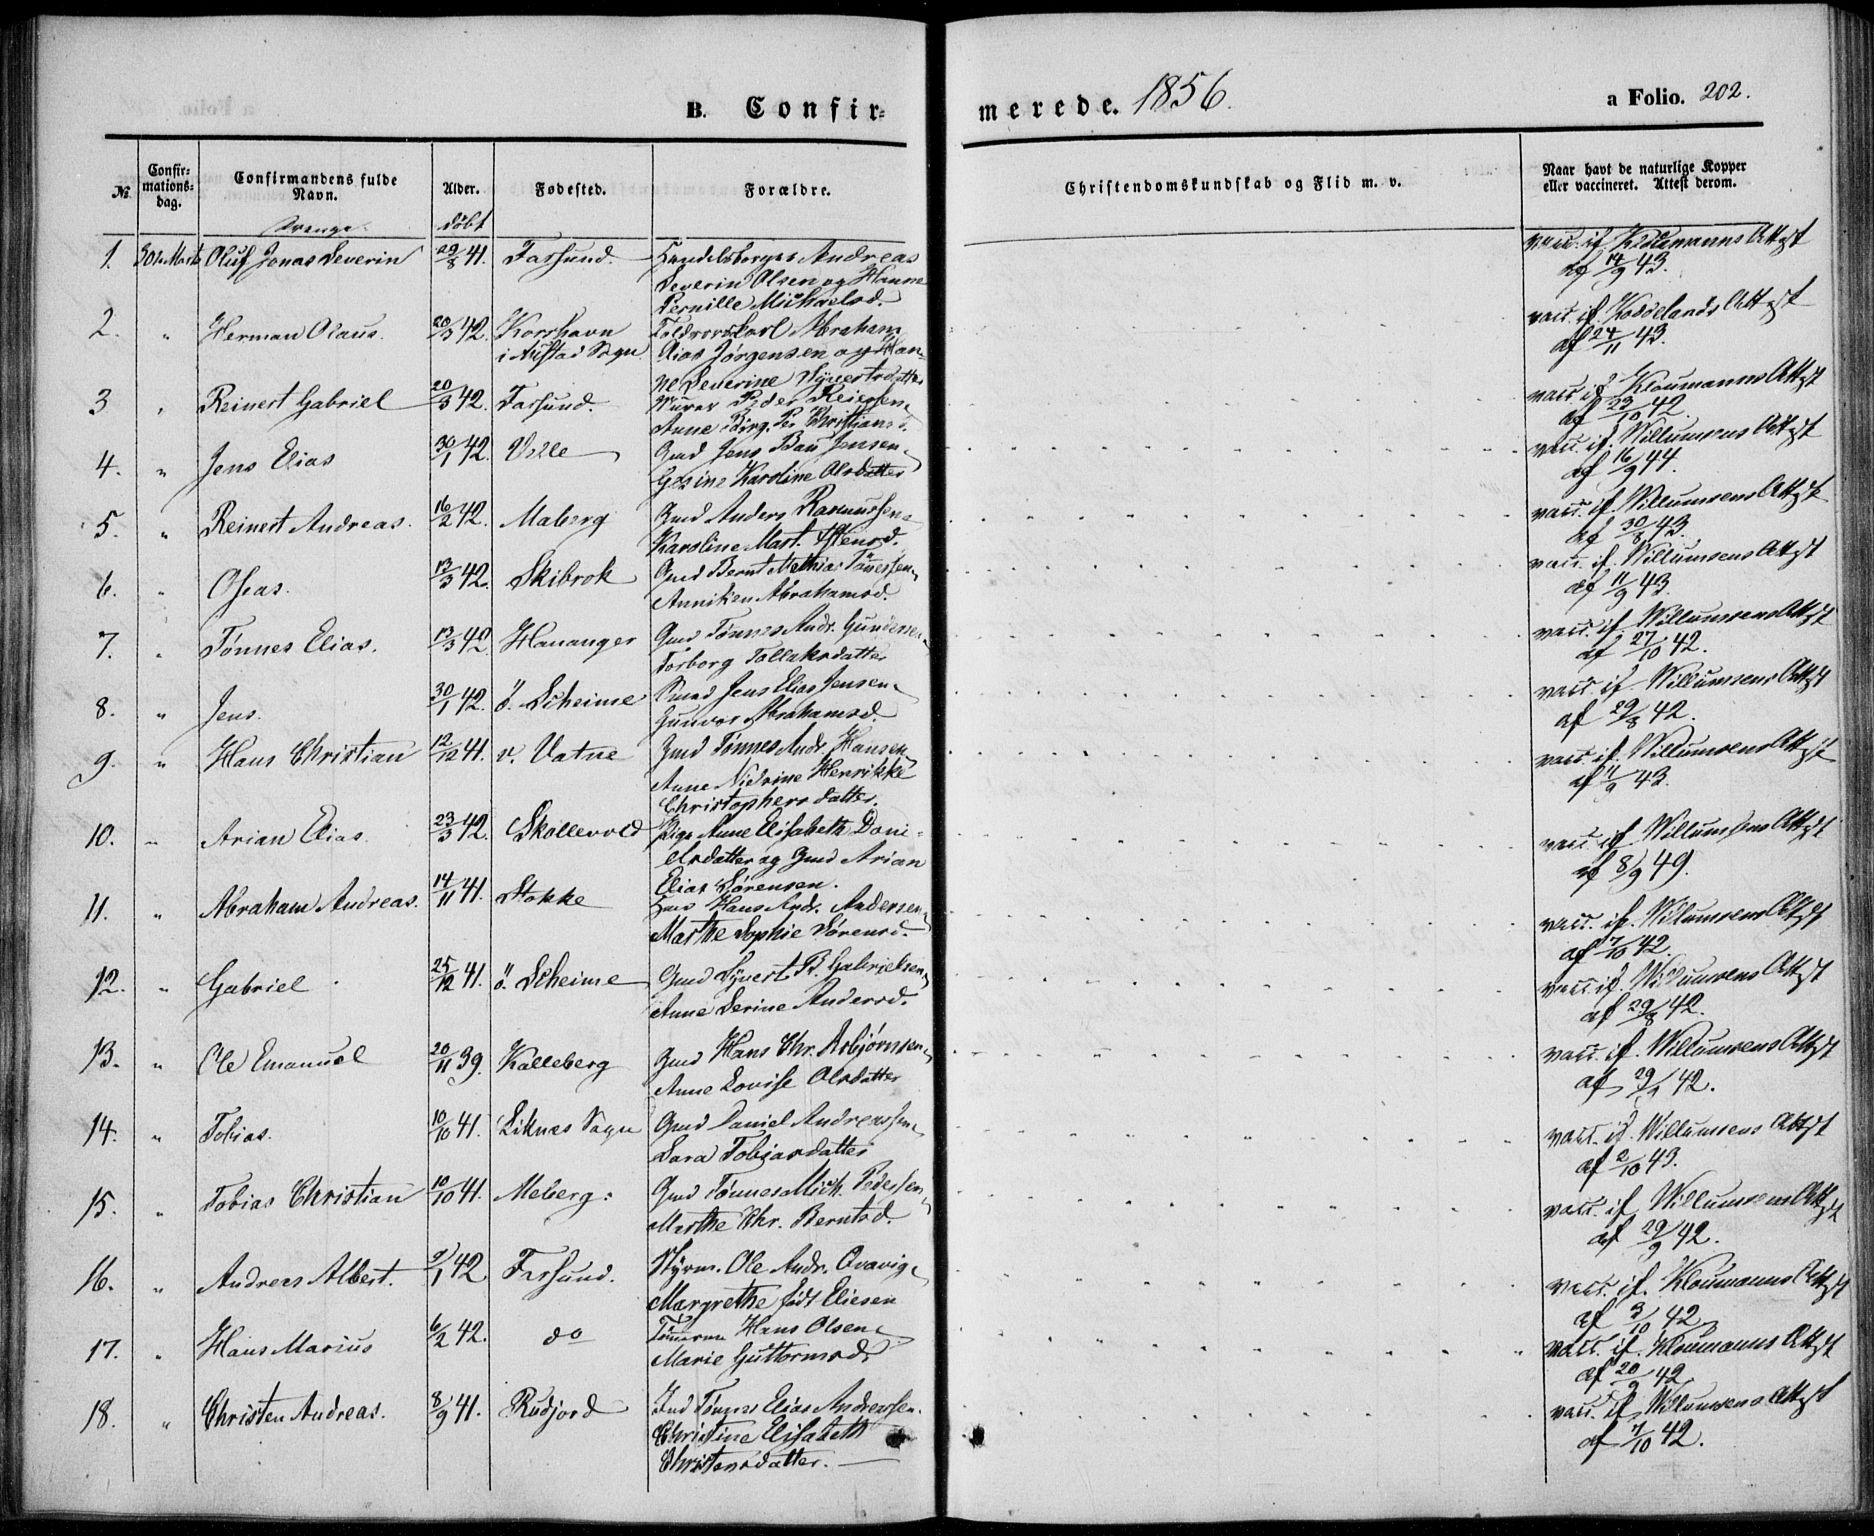 B. Confir-
merede. 1856.
a Folio. 202.
№
Confir-
mations-
dag.
Confirmandens fulde
Navn.
Alder.
Fødested.
Forældre.
Christendomskundskab og Flid m. v.
Naar havt de naturlige Kopper
eller vaccineret. Attest derom.
Drenge.
døbt
1. 30te Marts Oluf Jonas Severin 29/8 41. Farsund. Handelsborger Andreas
Severin Olsen og Hanne
Pernille Michaelsd.
vacc. if Attest
af 14/9 43.
2. " Herman Olaus. 20/3 42. Korshavn
i Austad Sogn
Toldrorskarl Abraham
Jørgensen og Han-
ne Severine Syvertsdatter
vacc. if Attest
af 24/11 43.
3 " Reinert Gabriel 20/3 42. Farsund. Murer Peder Reiersen,
Anne Birg. Christiansd.
vacc. if Kloumanns Attest
af 23/10 42.
4. " Jens Elias 30/1 42. Velle Gmd Jens Bau Jensen,
Gesine Karoline Olsdatter
vacc. if. Willumsens Attest
af 16/9 44.
5. " Reinert Andreas. 16/2 42. Maberg Gmd Anders Rasmussen,
Karoline Mart.
vacc. if. Willumsens Attest
af 30/8 43.
6. " Oseas. 13/3 42. Skibrok Gmd Bernt Mathias Tønnessen,
Anniken Abrahamsd.
vacc. if. Willumsens Attest
af 11/9 43.
7. " Tønnes Elias. 13/3 42 Hananger Gmd Tønnes Andr. Gundersen,
Torborg Tollaksdatter
vacc. if Willumsens Attest
af 27/10 42.
8. " Jens. 30/1 42. ö. Scheime Gmd Jens Elias Jensen,
Gunvor Abrahamsd.
vacc. if Willumsens Attest
af 29/8 42.
9. " Hans Christian 12/12 41. v. Vatne Gmd Tønnes Andr. Hansen
Anne Henrikke
Christophersdatter.
vacc. if. Willumsens Attest
af 11/9 43.
10. " Arian Elias. 23/3 42. Skollevold Pige Anne Elisabeth Dani-
elsdatter og Gmd Arian
Elias Sørensen.
vacc. if Willumsens Attest
af 8/9 49.
11. " Abraham Andreas. 14/11 41. Stokke Hans Andr. Andersen,
Marthe Sophie Sørensd.
vacc. if. Willumsens Attest
af 7/10 42
12. " Gabriel 25/12 41. ö. Scheime Gmd Syvert Gabrielsen,
Anne Serine Andersd.
vacc. if. Willumsens Attest
af 29/8 42.
13. " Ole Emanuel 20/11 39. Kalleberg Gmd Hans Chr. Asbjørnsen,
Anne Lovise Olsdatter
vacc. if. Willumsens Attest
42.
14. " Tobias. 10/10 41. Liknes Sogn Gmd Daniel Andreassen,
Sara Tobiasdatter
vacc. if. Willumsens Attest
af 2/10 43.
15. " Tobias Christian 10/10 41. Meberg. Gmd Tønnes Mich. Pedersen,
Marthe Chr. Berntsd.
vacc. if Willumsens Attest
af 29/9 42.
16. " Andreas Albert. 9/1 42 Farsund. Styrm. Ole Andr. Qvavig,
Margrethe født Eliesen
vacc. if. Kloumanns Attest
af 3/10 42.
17. " Hans Marius 6/2 42. do Hans Olsen,
Marie Guttormsd.
vacc. if. Kloumanns Attest
af 20/9 42.
18. " Christen Andreas. 8/9 41. Rudjord Tønnes Elias Andersen.
Christine Elisabeth
Christensdatter.
vacc. if Willumsens Attest
af 7/10 42.